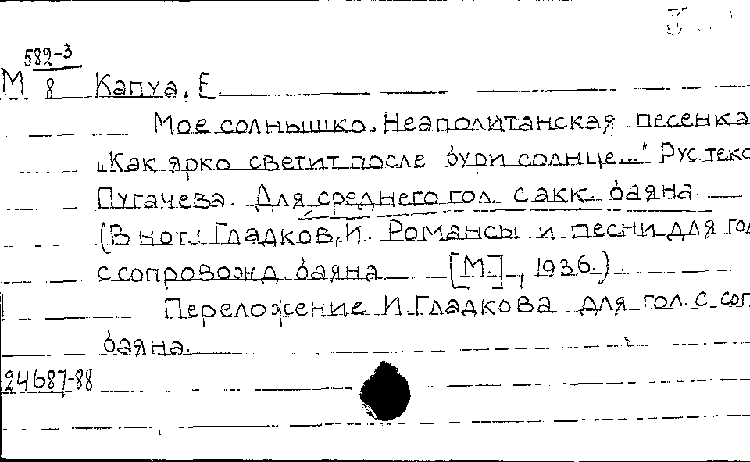 582-3
М 8 Капуа, Е.
Мое солнышко. Неаполитанская песенка
„Как ярко светит после бури солнце..." Рус текс
Пугачева. Для среднего гол. с акк. баяна
(В ног.: Гладков, И. Романсы и песни для гол
с сопровожд. баяна [М.], 1936.)
Переложение И. Гладкова для гол. с соп
баяна.
24687-88